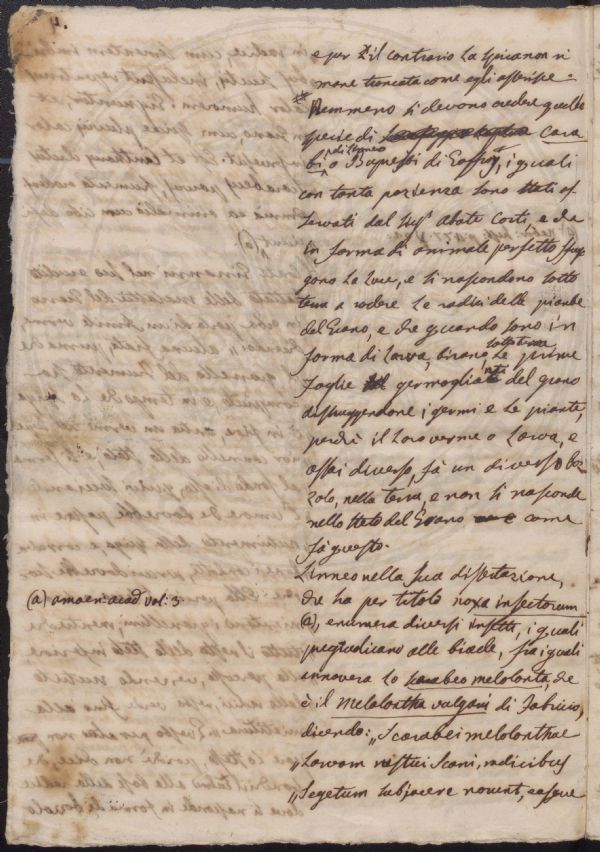 4.
e per il contrario la spica non ri
mane troncata come egli asserisce =
** Nemmeno si devono credere quelle
specie di Cara
bi di Linneo o Bupresti di Goffroy, i quali
con tanta pazienza sono stati os
servati dal Sig.r Abate Corti, e che
in forma di animale perfetto fug
gono la luce, e si nascondono sotto
terra a rodere le radici delle piante
del Grano, e che quando sono in
forma di Larva, tirano sotto terra le prime
foglie germogliante del grano
distruggendone i germi e le piante,
perchè il loro verme o Larva, è
assai diverso, fà un diverso boz
zolo, nella terra, e non si nasconde
nello stelo del Grano come
fà questo.
Linneo nella sua dissertazione,
che ha per titolo noxa insectorum
(a) amaen: acad vol: 3
(a), enumera diversi insetti, i quali
pregiudicano alle biade, frà i quali
annovera lo scarabeo melolonta, che
è il melolontha vulgaris di Fabricio,
dicendo: „ Scarabei melolonthae
„ Larvam rustici Scani, radicibus
„ Segetum subjacere norunt, easque